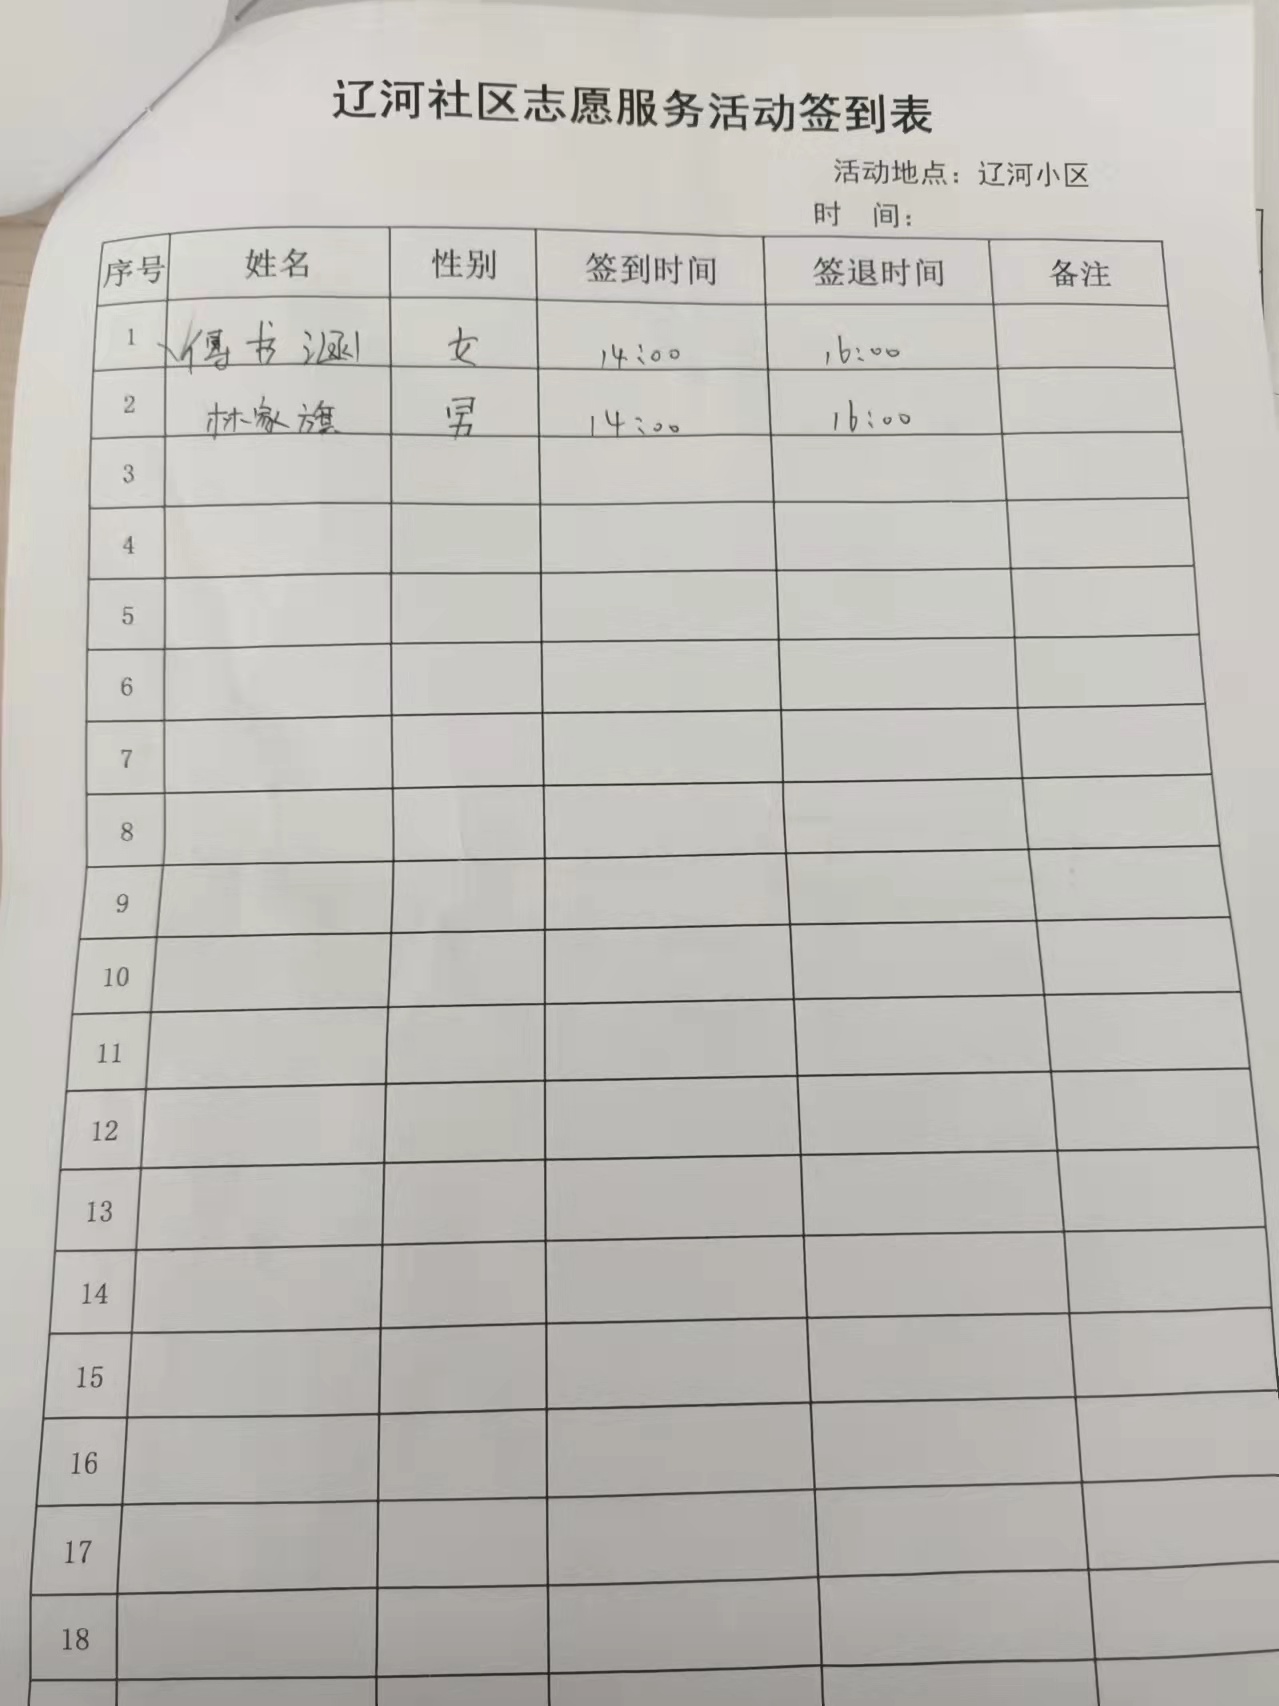 辽河社区志愿服务活动签到表
活动地点：辽河小区
时 间：
序号 姓名 性别 签到时间 签退时间 备注
1 傅书涵 女 14:00 16:00
2 林家旗 男 14:00 16:00
3
4
5
6
7
8
9
10
11
12
13
14
15
16
17
18